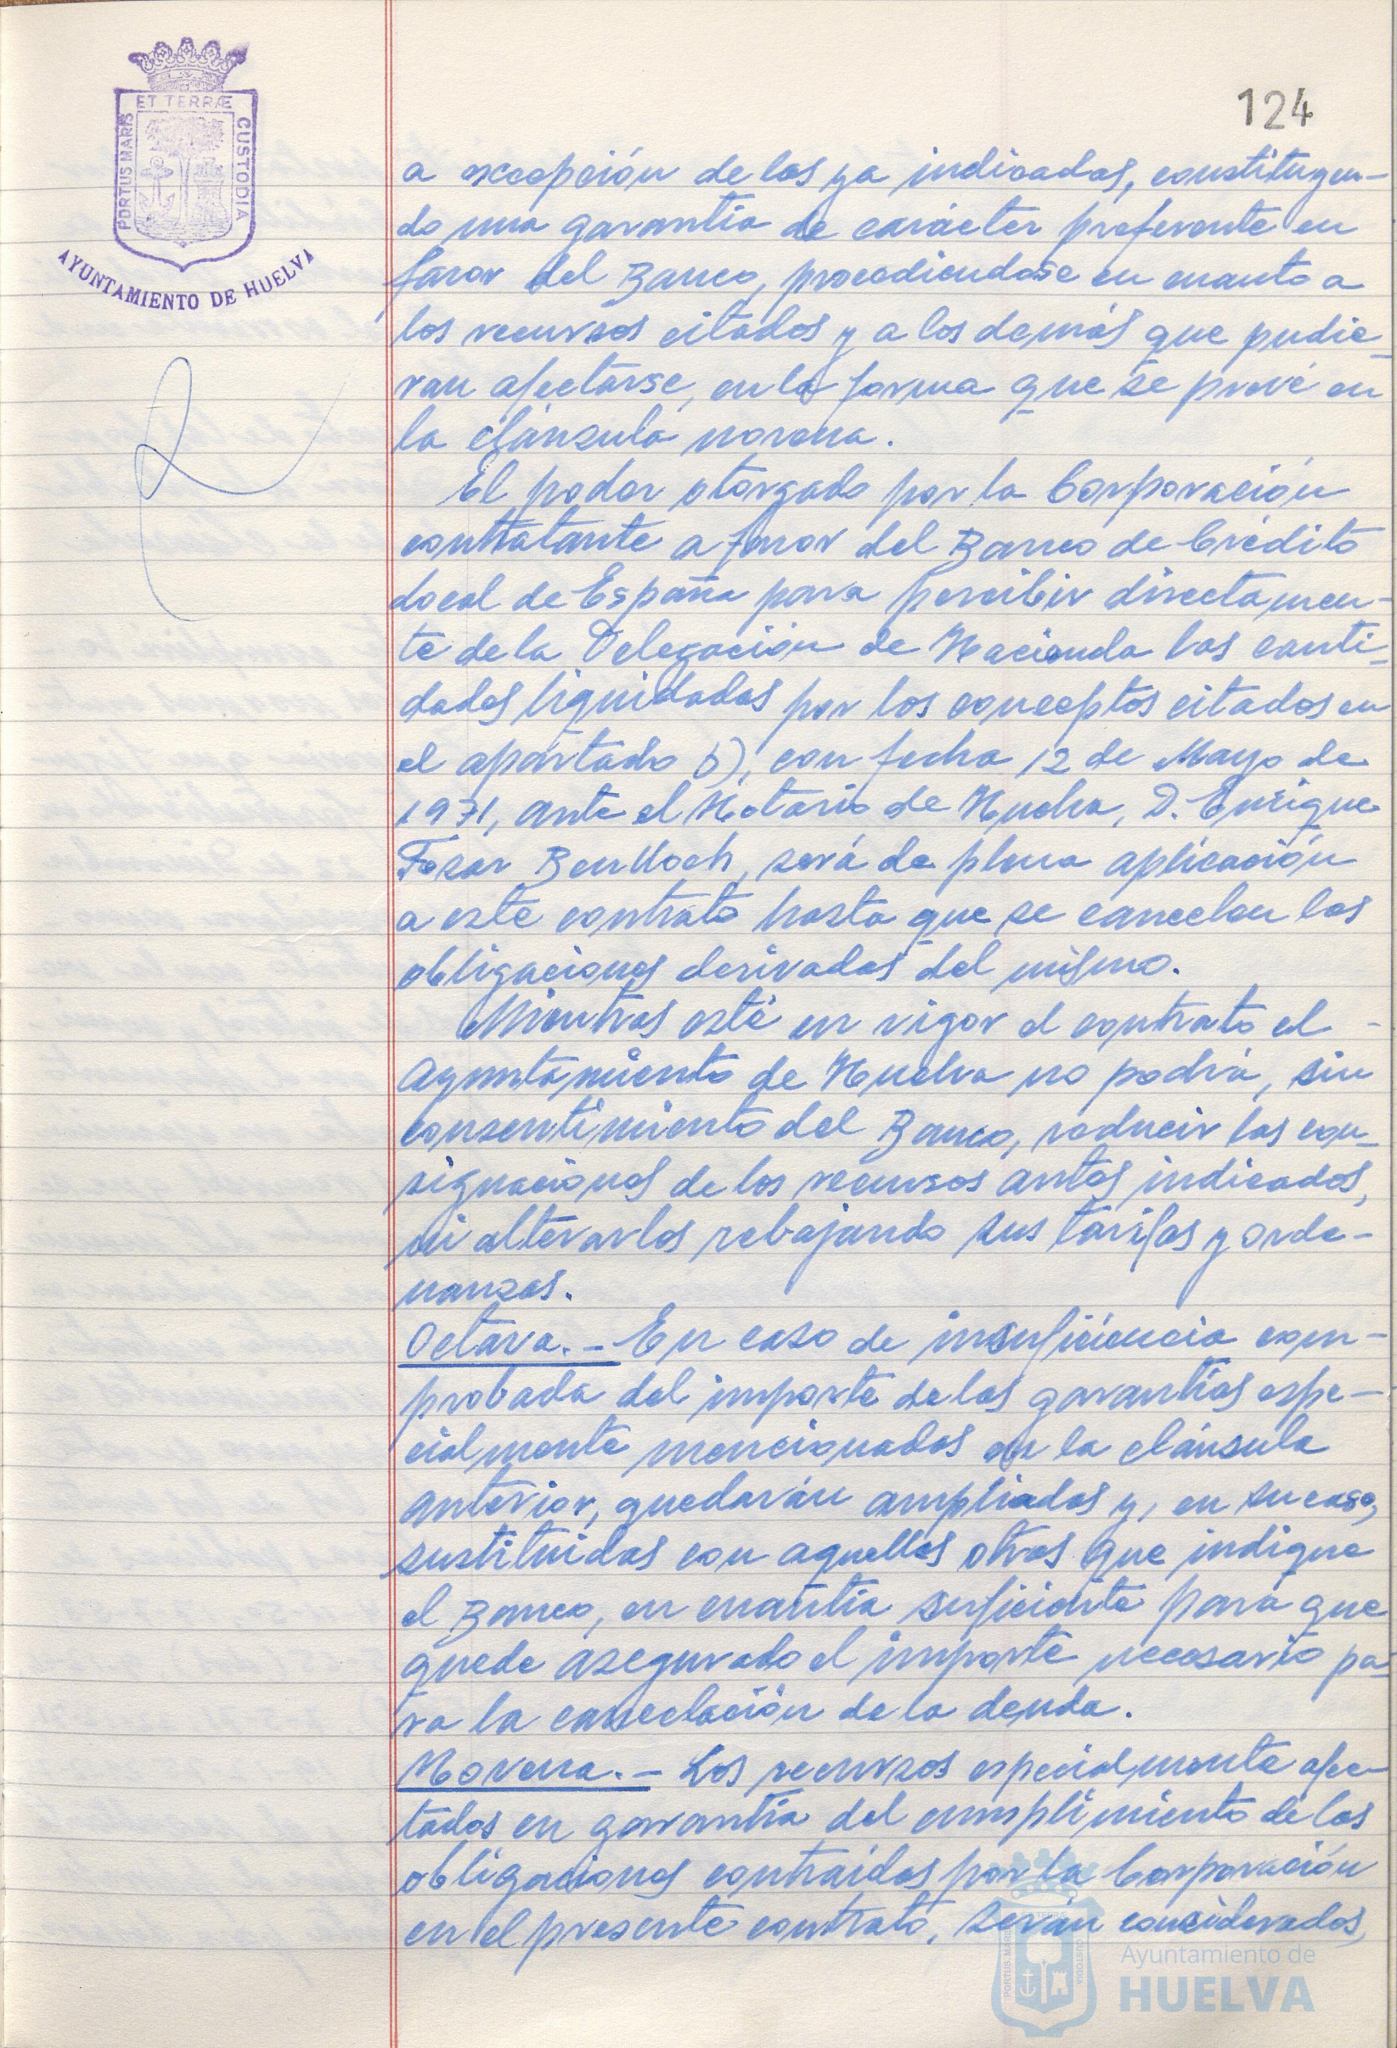 ET TERRÆ
PORTUS MARIS
CUSTODIA
AYUNTAMIENTO DE HUELVA
124
a excepción de los ya indicados, constituyen-
do una garantía de carácter preferente en
favor del Banco, procediendose en cuanto a
los recursos citados y a los demás que pudie-
ran afectarse, en la forma que se prevé en
la cláusula novena.
El poder otorgado por la Corporación
contratante a favor del Banco de Crédito
Local de España para percibir directamen-
te de la Delegación de Hacienda las canti-
dades liquidadas por los conceptos citados en
el apartado b), con fecha 12 de Mayo de
1971, ante el Notario de Huelva, D. Enrique
Fosar Benlloch, será de plena aplicación
a este contrato hasta que se cancelen las
obligaciones derivadas del mismo.
Mientras esté en vigor el contrato el -
Ayuntamiento de Huelva no podrá, sin
consentimiento del Banco, reducir las con-
signaciones de los recursos antes indicados,
ni alterarlos rebajando sus tarifas y orde-
nanzas.
Octava.- En caso de insuficiencia com-
probada del importe de las garantías espe-
cialmente mencionadas en la cláusula
anterior, quedarán ampliadas y, en su caso,
sustituidas con aquellas otras que indique
el Banco, en cuantía suficiente para que
quede asegurado el importe necesario pa-
ra la cancelación de la deuda.
Novena.- Los recursos especialmente afec-
tados en garantía del cumplimiento de las
obligaciones contraídas por la Corporación
en el presente contrato, serán considerados,
Ayuntamiento de
HUELVA